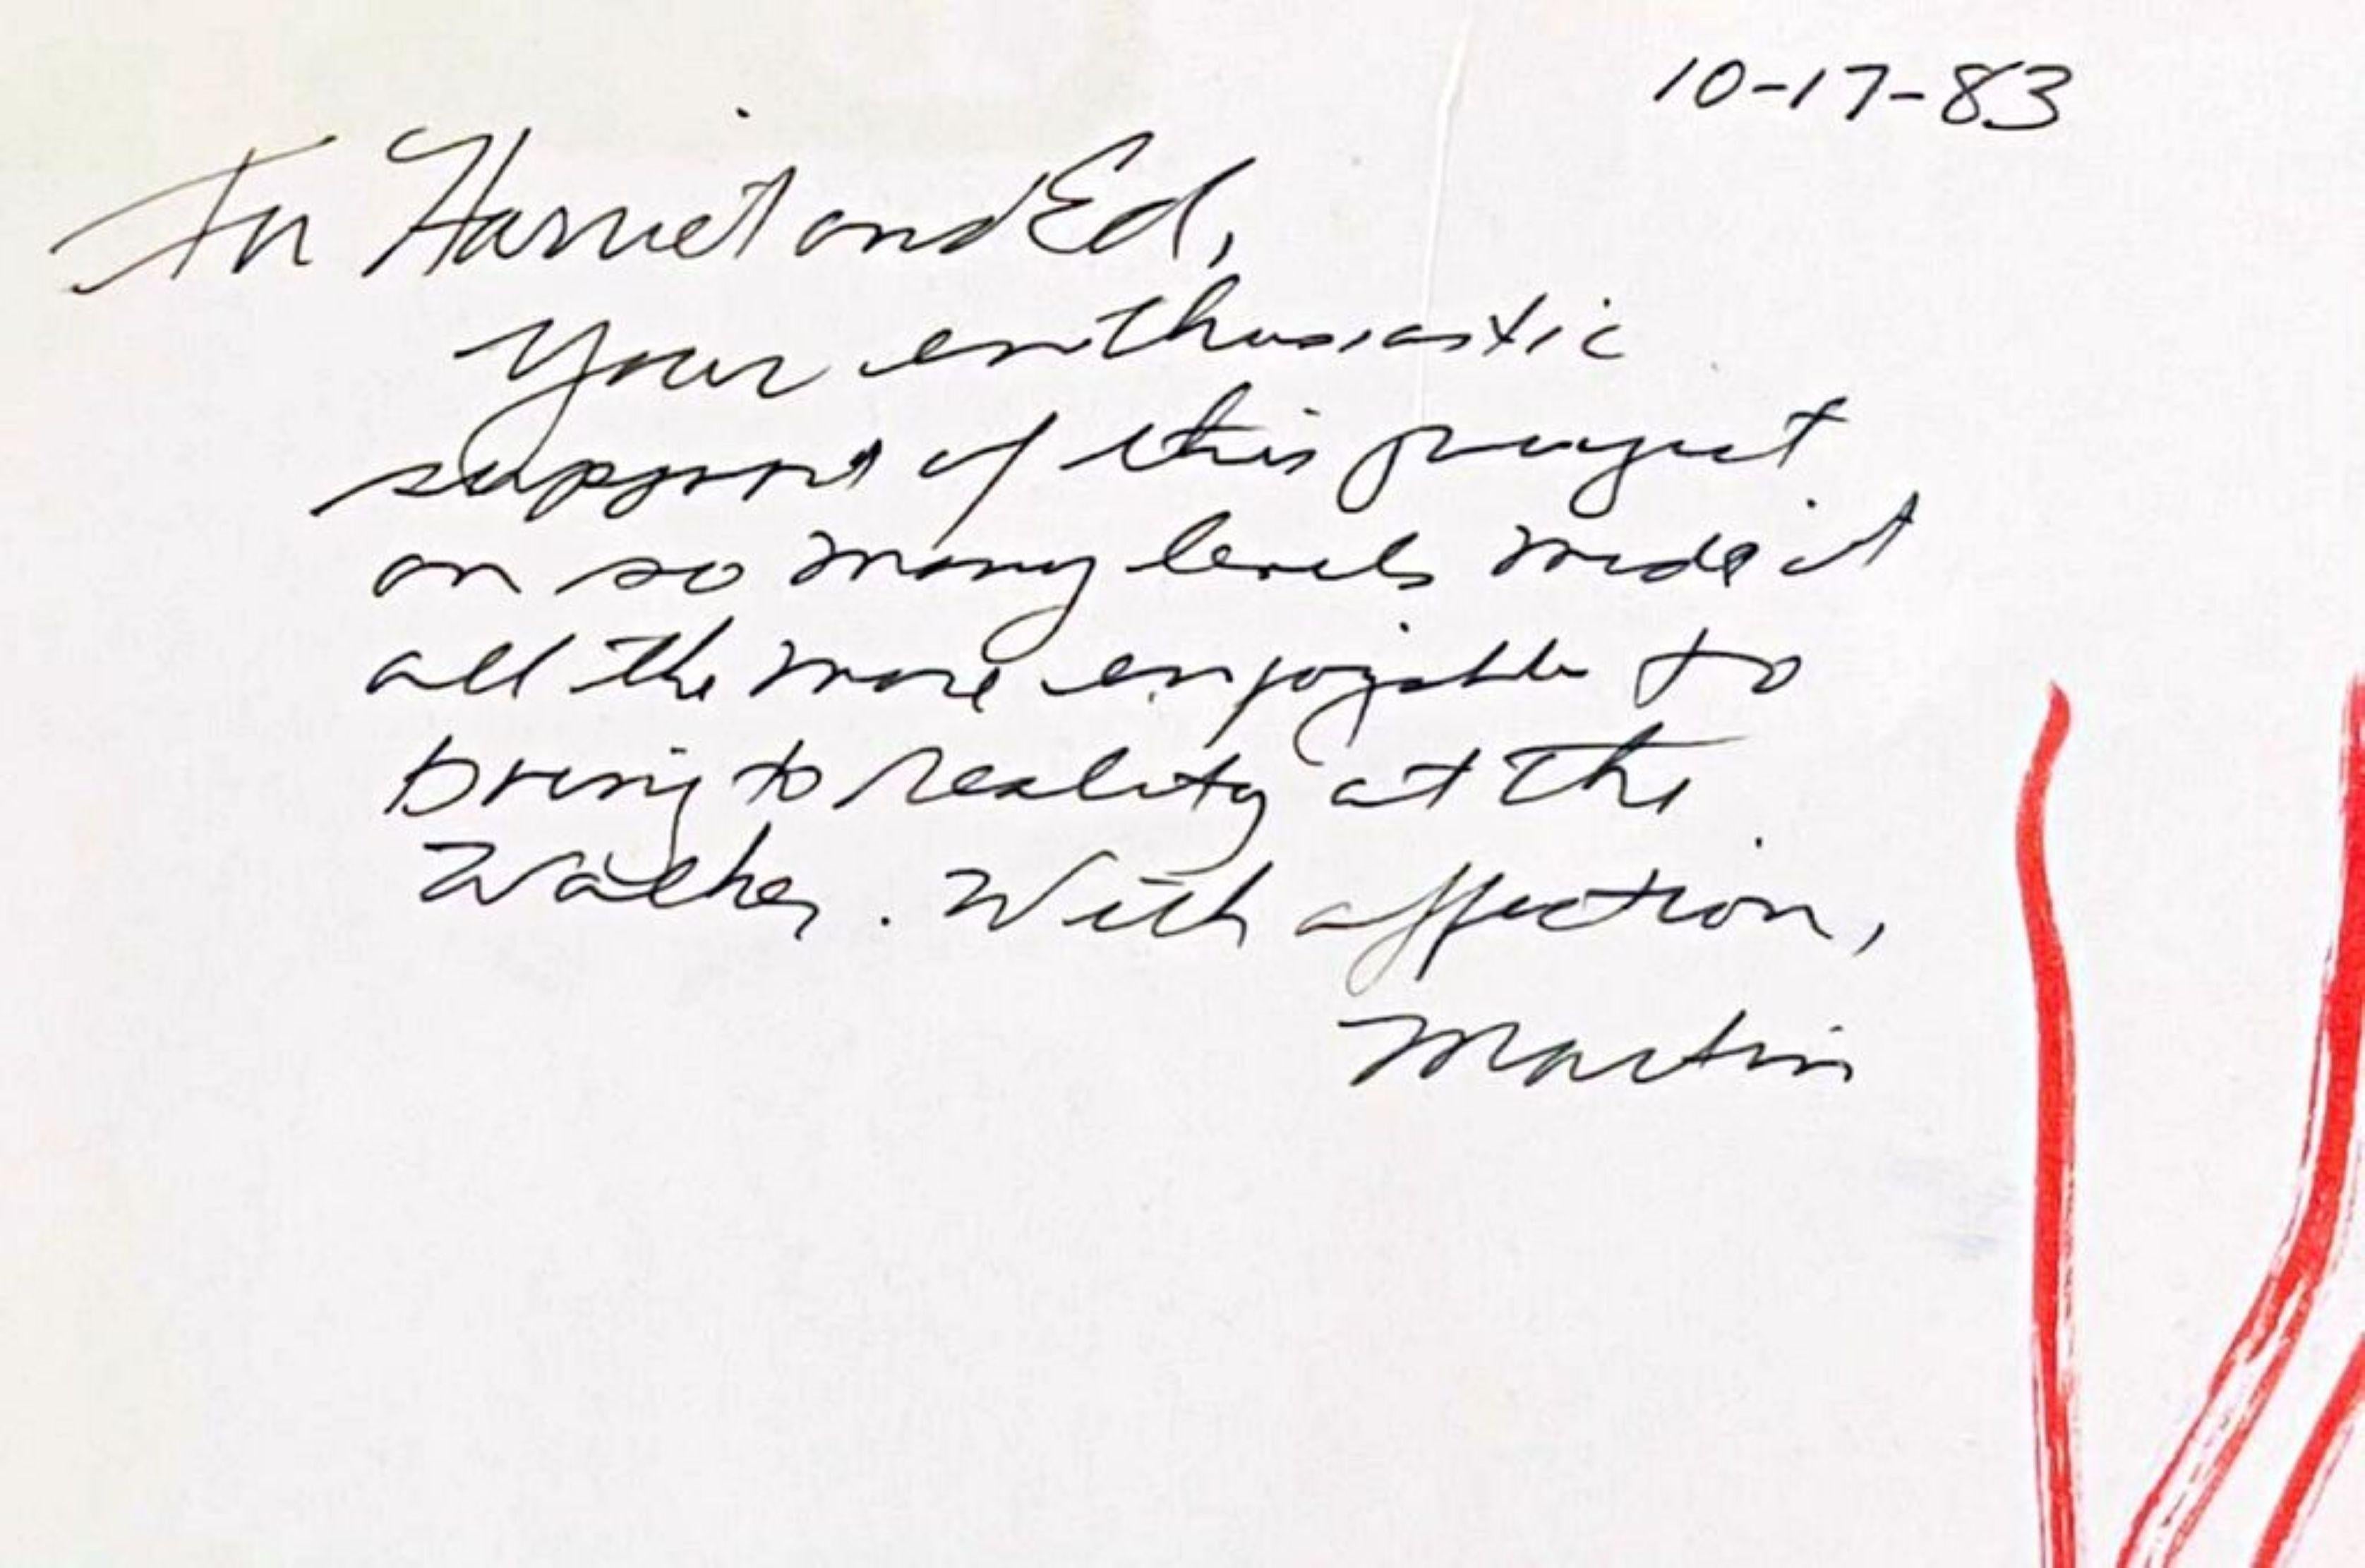 10-17-83
For Harriet and Ed,
Your enthusiastic
support of this project
on so many levels made it
all the more enjoyable to
bring to reality at the
Walker. With affection,
Martin